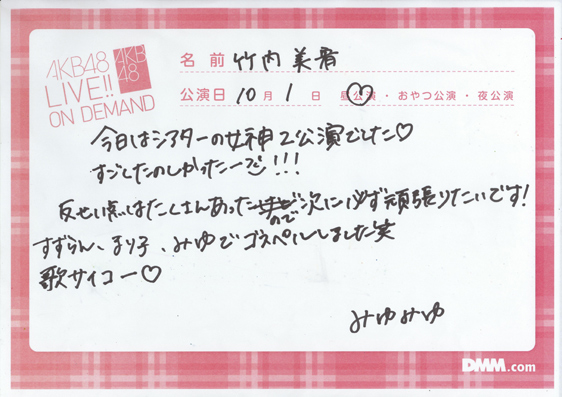 AKB48
LIVE!!
ON DEMAND
AKB
48
名前 竹内美宥
公演日 10月1日 昼公演・おやつ公演・夜公演
今日はシアターの女神2公演でした♡
すごしたのしかったー!!!
反せい点はたくさんあったので次に必ず頑張りたいです!
すずらん、まり子、みゆでゴスペルしました笑
歌サイコー♡
みゆみゆ
DMM.com